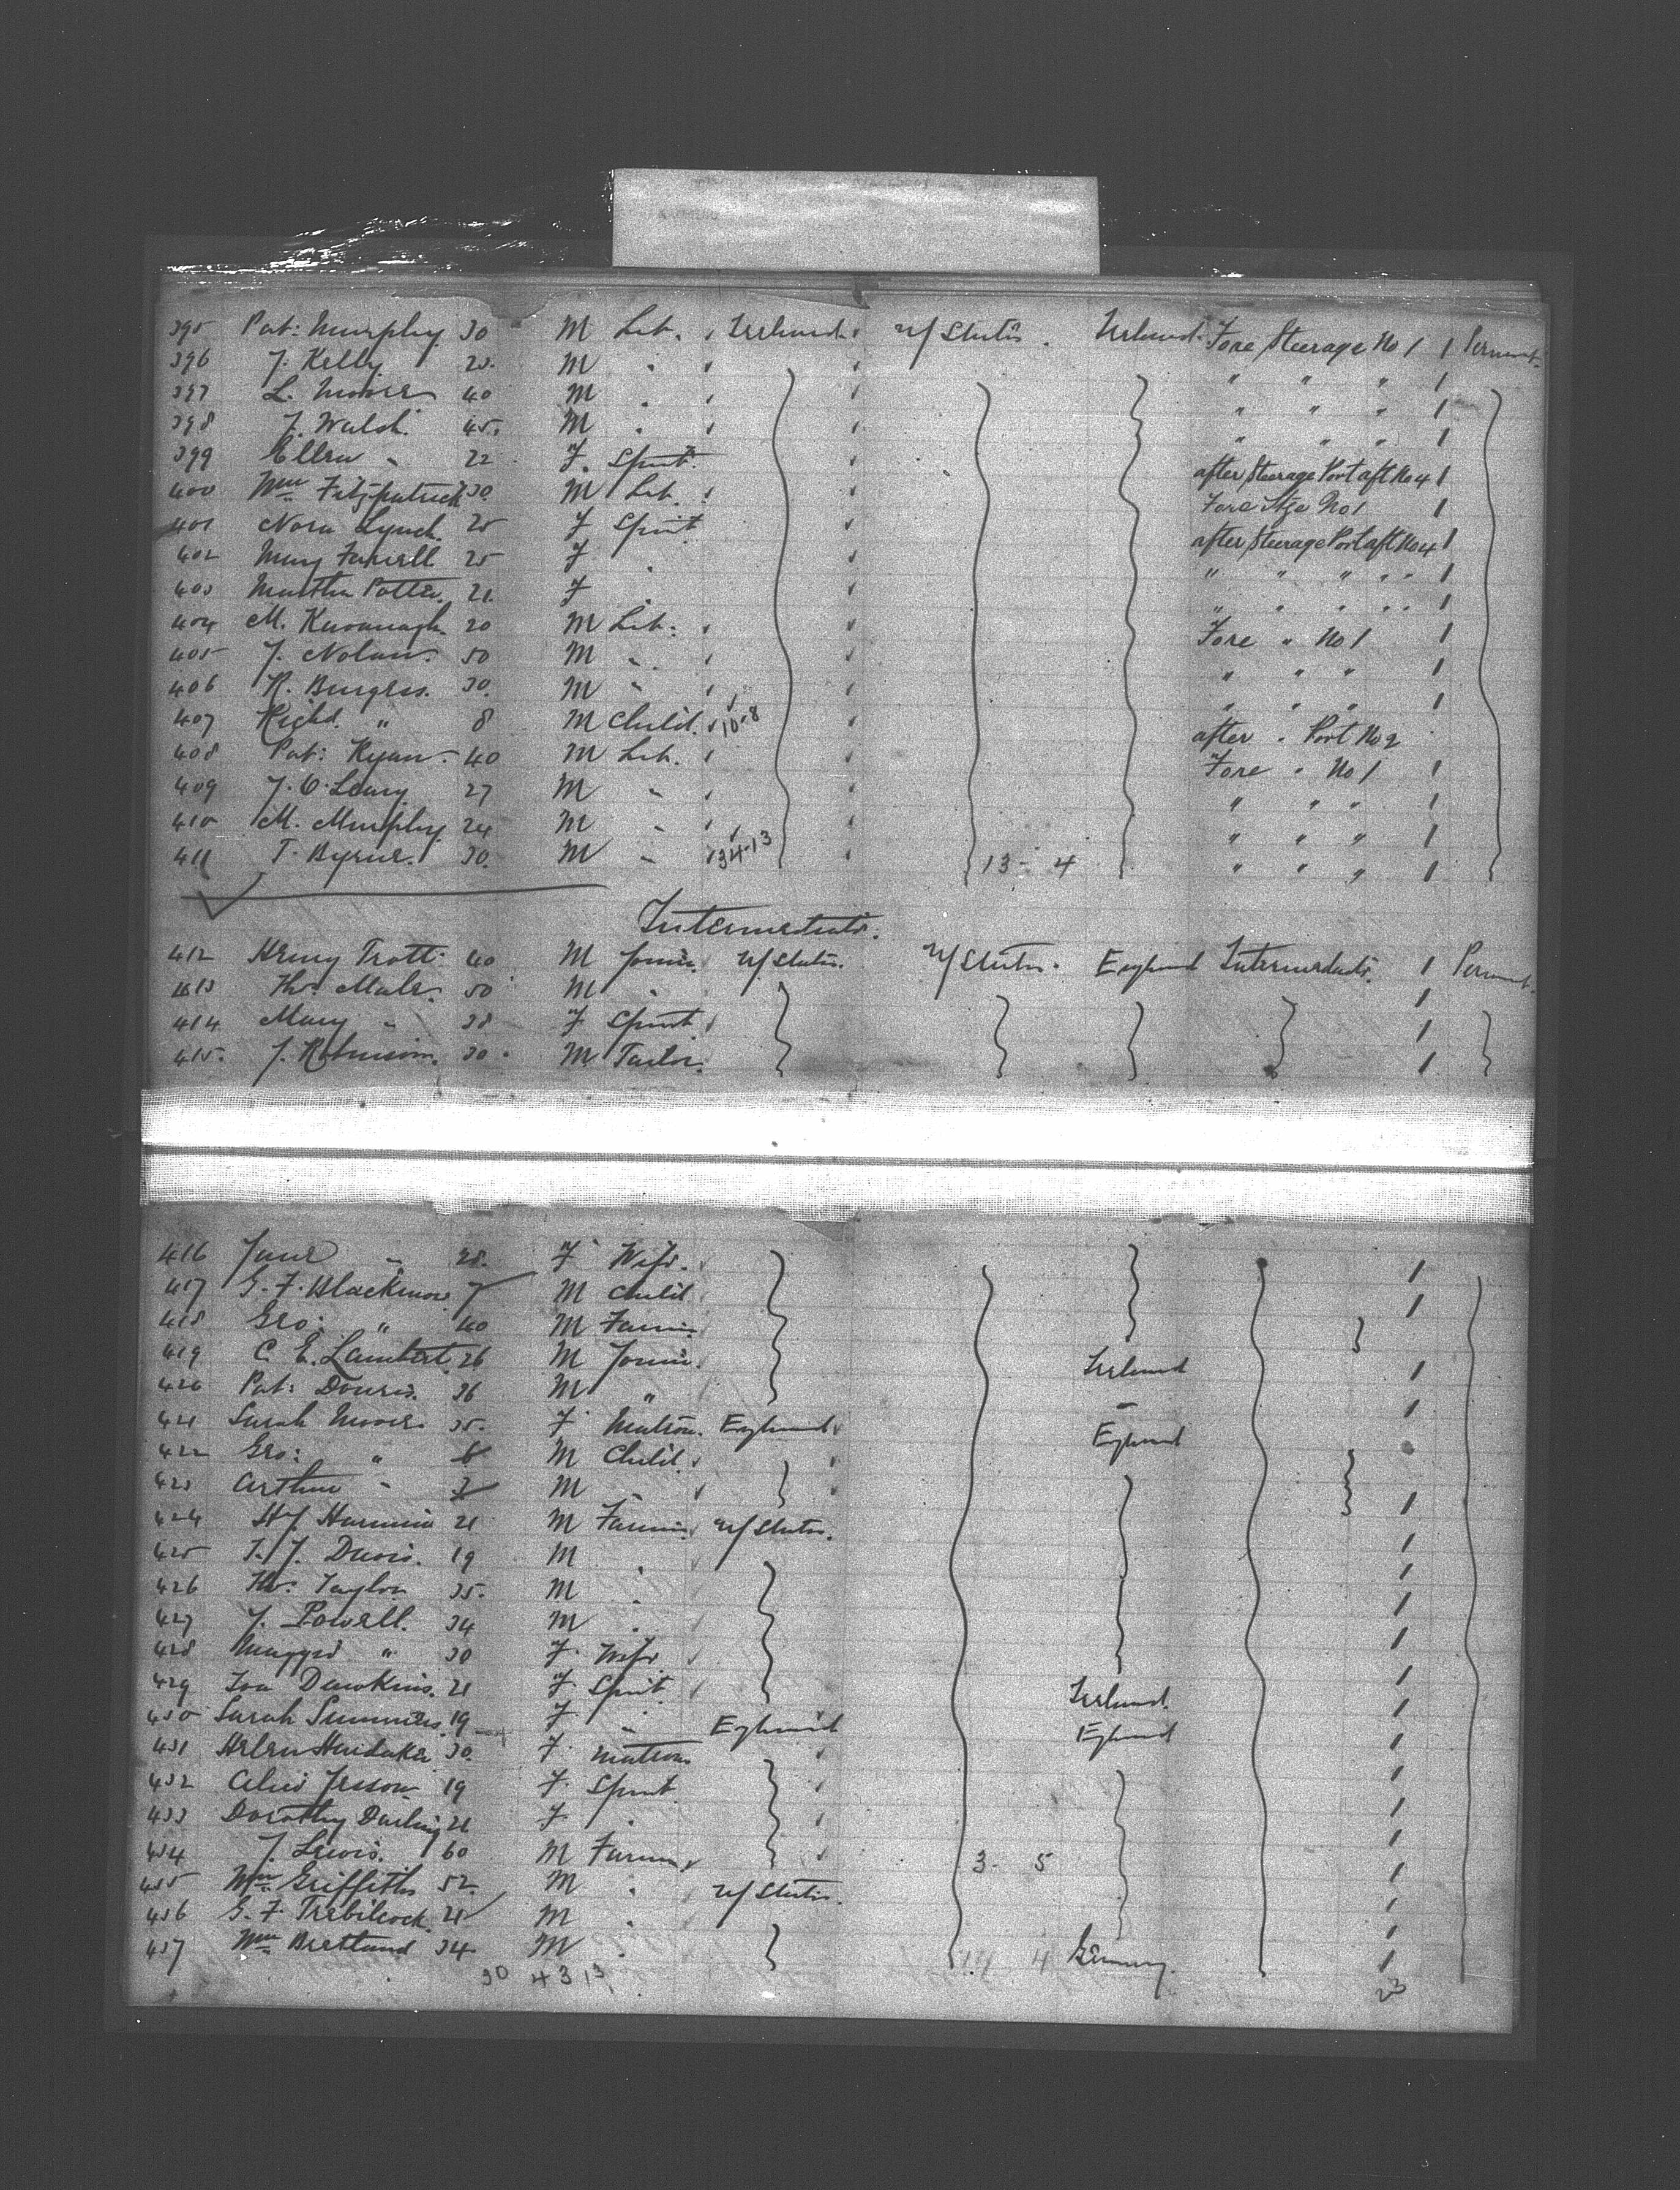 395 Pat: Murphy 30 M Lab. Ireland U/States Ireland Fore Steerage No 1 1 Permant.
396 J. Kelly 23. M " " " " 1
397 L. Moore 40 M " " " " 1
398 J. Walsh. 45. M " " " " 1
399 Ellen " 22 F. Spinst. after Steerage Port aft No 4 1
400 Wm Fitzpatrick 30 M Lab. Fore Stge No 1 1
401 Nora Lynch. 25 F Spinst after Steerage Port aft No 4 1
402 Mary Farrell 25 F " " " " " " 1
403 Martha Potter. 21. F " " " " " " 1
404 M. Kavanagh. 20 M Lab: Fore " No 1 1
405 J. Nolan. 50 M " " " " 1
406 R. Burgess. 30. M " " " " 1
407 Richd. " 8 M Child. 10-8 after " Port No 2
408 Pat: Ryan. 40 M Lab. Fore " No 1 1
409 J. O. Leary 27 M " " " " 1
410 M. Murphy 24 M " " " " 1
411 T. Byrne. 30. M " 34-13 13- 4 " " " 1
Intermediate.
412 Henry Trott. 40 M Joiner. U/States. U/States. England Intermediate. 1 Permant.
413 Ths. Male. 50 M " 1
414 Mary " 38 F Spinst 1
415. J. Robinson. 30. M Tailor. 1
416 Jane " 28. F Wife. 1
417 G. F. Blackmore 7 M Child 1
418 Geo: " 40 M Farmer
419 C. E. Lambert 26 M Joiner. Ireland 1
420 Pat: 36 M " " 1
421 Sarah Moore. 35. F Matron. England England
422 Geo: " 6 M Child
423 Arthur " 3 M " 1
424 21 M Farmer U/States. 1
425 T. J. Davis. 19 M " 1
426 Ths. Taylor 35. M " 1
427 J. Powell. 34 M " 1
428 " 30 F. Wife 1
429 Dawkins. 21 F Spinst Ireland. 1
430 Sarah Summers. 19 F " England England 1
431 Helen 30. F. Matron 1
432 Alice Jesson 19 F. Spinst 1
433 Dorothy Darling 21 F. " 1
434 J. Lewis. 60 M Farmer 3- 5 1
435 Wm Griffiths 52. M " U/States. 1
436 G. F. Trebilcock. 21 M " 1
437 Wm 34. M " 14 4 Germany. 1
30 4 3 13 23